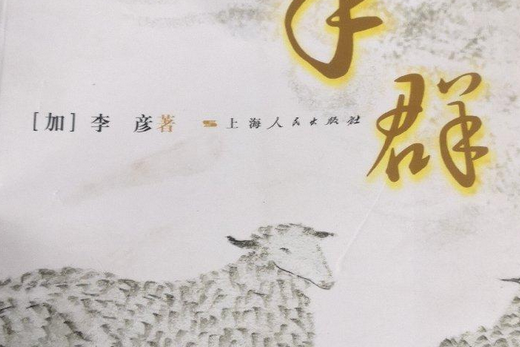 群
[加] 李 彦 著 上海人民出版社